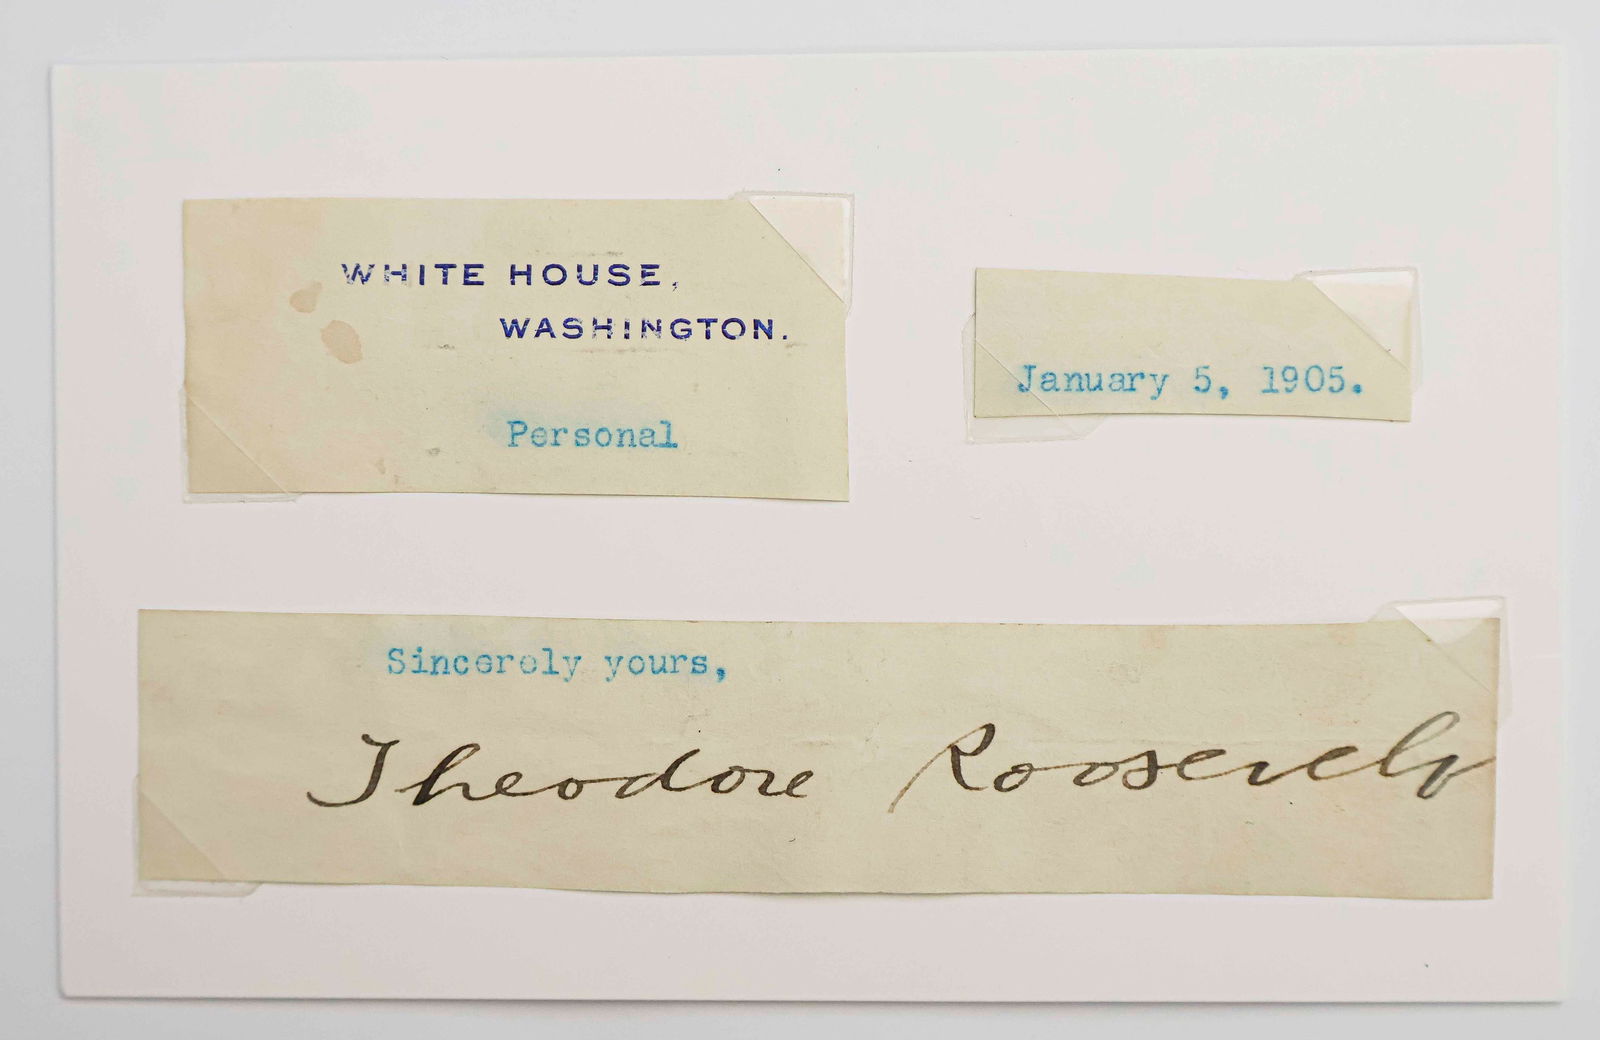 WHITE HOUSE,
WASHINGTON.
Personal
January 5, 1905.
Sincerely yours,
Theodore Roosevelt